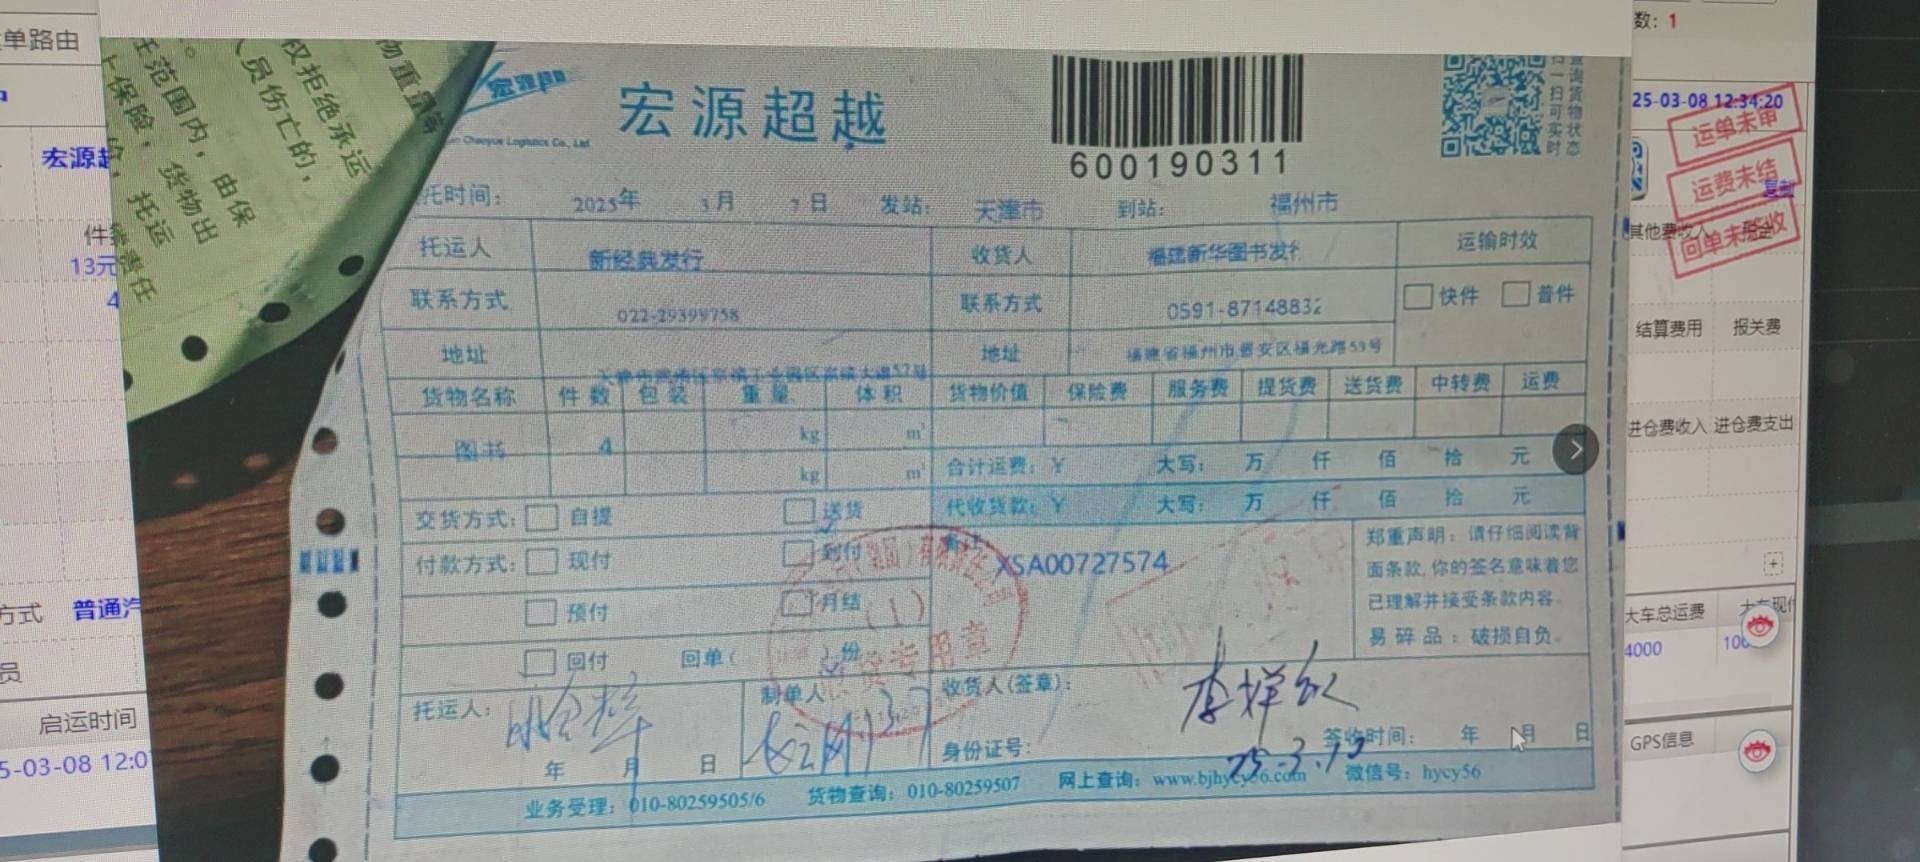 单路由
数：1
25-03-08 12:34:20
运单未审
运费未结
复制
回单未签收
其他费收入
结算费用 报关费
进仓费收入 进仓费支出
大车总运费
4000
GPS信息
宏源超
13元
方式 普通汽
员
启运时间
5-03-08 12:0
权拒绝承运
人员伤亡的，
任范围内，由保
上保险，货物出
托运
责任
宏源超越
Chaoyue Logistics Co., Ltd
宏源超越
600190311
查询货物状态
扫一扫可实时
托时间： 2025年 3月 7日 发站： 天津市 到站： 福州市
托运人 新经典发行 收货人 福建新华图书发行 运输时效
联系方式 022-29399758 联系方式 0591-87148832 快件 普件
地址 地址 福建省福州市晋安区福光路59号
货物名称 件数 包装 重量 体积 货物价值 保险费 服务费 提货费 送货费 中转费 运费
图书 4 kg m³
kg m³
合计运费：￥ 大写： 万 仟 佰 拾 元
代收货款：￥ 大写： 万 仟 佰 拾 元
交货方式： 自提 送货
付款方式： 现付 到付
预付 月结
回付 回单( )份
备注
XSA00727574
(1)
专用章
郑重声明：请仔细阅读背
面条款,你的签名意味着您
已理解并接受条款内容。
易碎品：破损自负。
托运人：
年 月 日
制单人
收货人(签章)：
李祥
身份证号：
签收时间： 年 月 日
25.3.12
业务受理：010-80259505/6 货物查询：010-80259507 网上查询：www.bjhycy56.com 微信号：hycy56